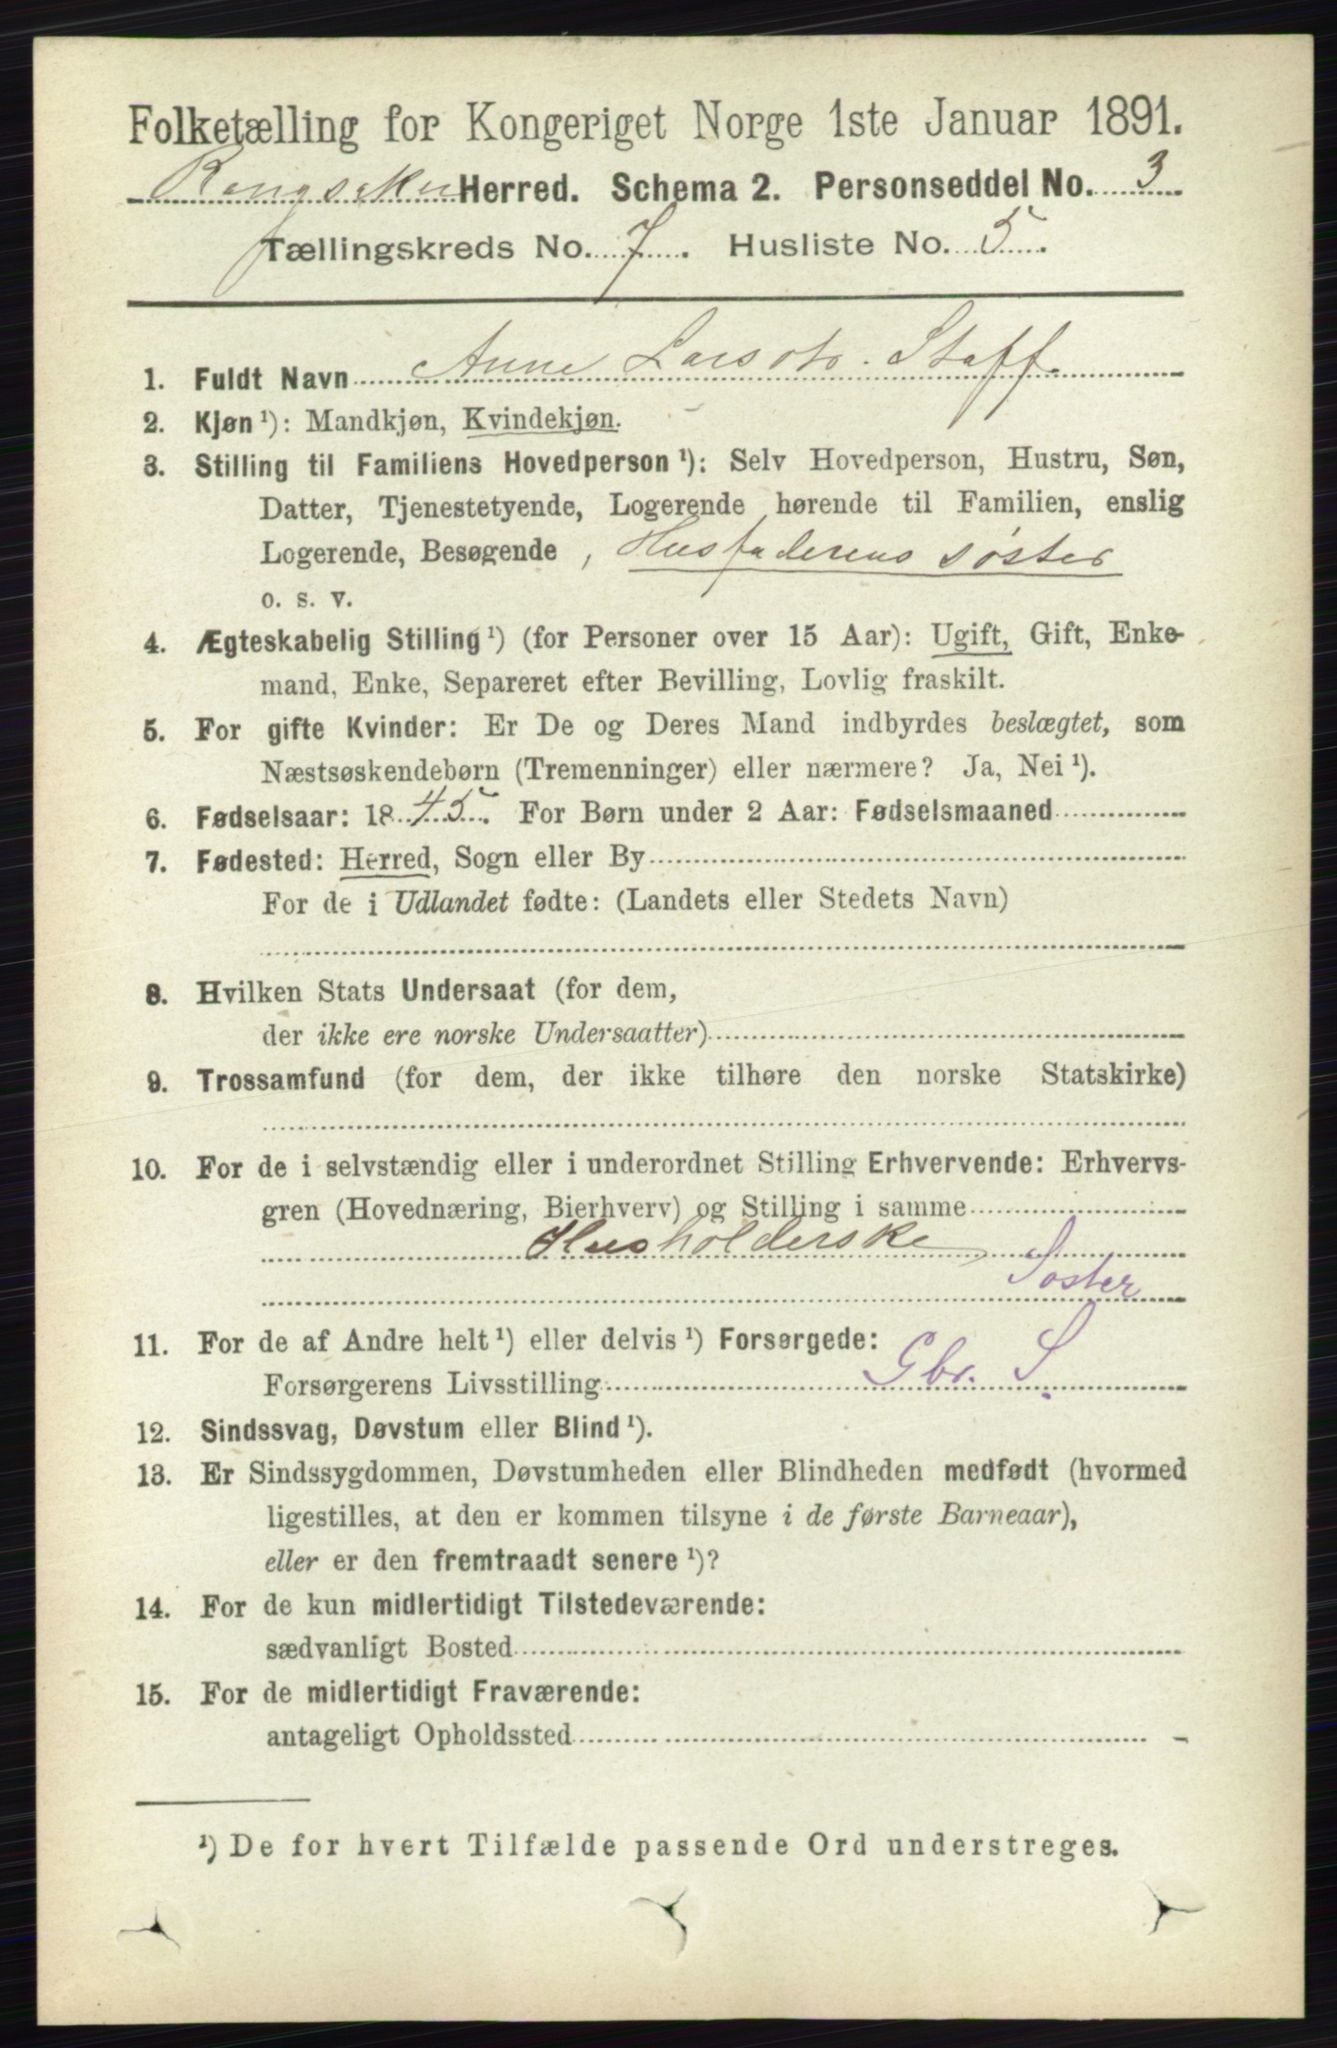 Folketælling for Kongeriget Norge 1ste Januar 1891.
Ringsaker Herred. Schema 2. Personseddel No. 3
Tællingskreds No. 7. Husliste No. 5.
1. Fuldt Navn Anne Larsdtr. Staff.
2. Kjøn ¹): Mandkjøn, Kvindekjøn.
3. Stilling til Familiens Hovedperson ¹): Selv Hovedperson, Hustru, Søn,
Datter, Tjenestetyende, Logerende hørende til Familien, enslig
Logerende, Besøgende , Husfaderens søster
o. s. v.
4. Ægteskabelig Stilling ¹) (for Personer over 15 Aar): Ugift, Gift, Enke-
mand, Enke, Separeret efter Bevilling, Lovlig fraskilt.
5. For gifte Kvinder: Er De og Deres Mand indbyrdes beslægtet, som
Næstsøskendebørn (Tremenninger) eller nærmere? Ja, Nei ¹).
6. Fødselsaar: 1845. For Børn under 2 Aar: Fødselsmaaned
7. Fødested: Herred, Sogn eller By
For de i Udlandet fødte: (Landets eller Stedets Navn)
8. Hvilken Stats Undersaat (for dem,
der ikke ere norske Undersaatter)
9. Trossamfund (for dem, der ikke tilhøre den norske Statskirke)
10. For de i selvstændig eller i underordnet Stilling Erhvervende: Erhvervs-
gren (Hovednæring, Bierhverv) og Stilling i samme
Husholderske
Søster
11. For de af Andre helt ¹) eller delvis ¹) Forsørgede:
Forsørgerens Livsstilling Gbr. S.
12. Sindssvag, Døvstum eller Blind ¹).
13. Er Sindssygdommen, Døvstumheden eller Blindheden medfødt (hvormed
ligestilles, at den er kommen tilsyne i de første Barneaar),
eller er den fremtraadt senere ¹)?
14. For de kun midlertidigt Tilstedeværende:
sædvanligt Bosted
15. For de midlertidigt Fraværende:
antageligt Opholdssted
¹) De for hvert Tilfælde passende Ord understreges.